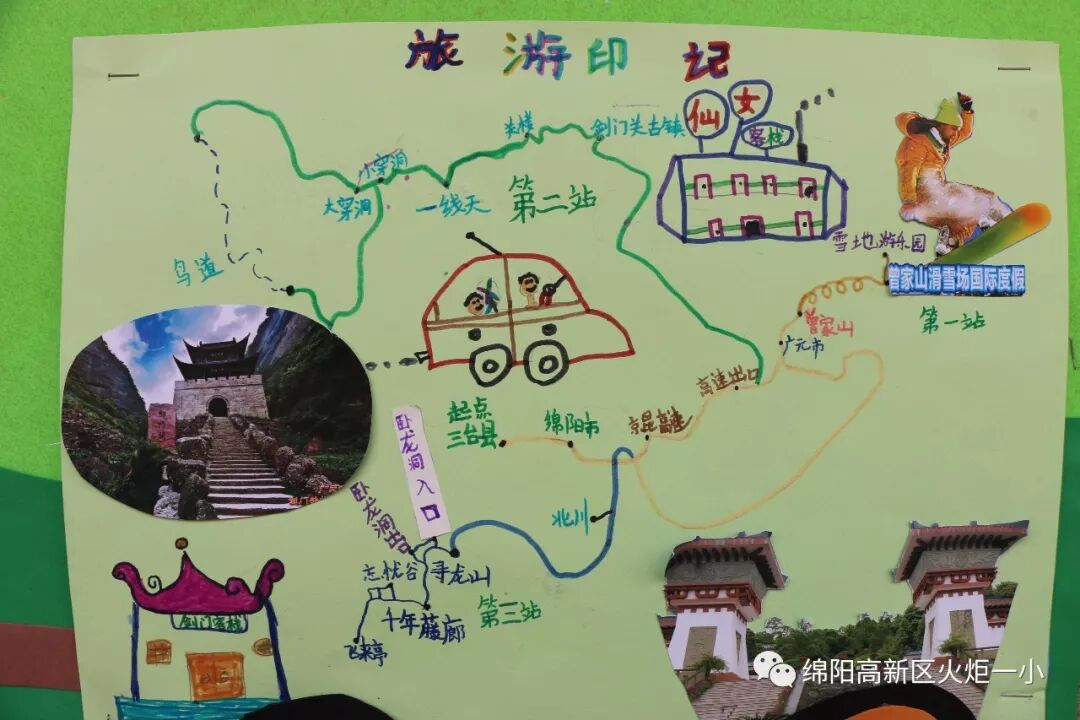 旅游印记
仙女
客栈
关楼
剑门关古镇
小穿洞
大穿洞
一线天
第二站
鸟道
雪地游乐园
曾家山滑雪场国际度假
第一站
曾家山
广元市
高速出口
起点
三台县
绵阳市
京昆高速
卧龙洞入口
卧龙洞出口
北川
忘忧谷
寻龙山
第三站
千年藤廊
飞来亭
剑门客栈
绵阳高新区火炬一小